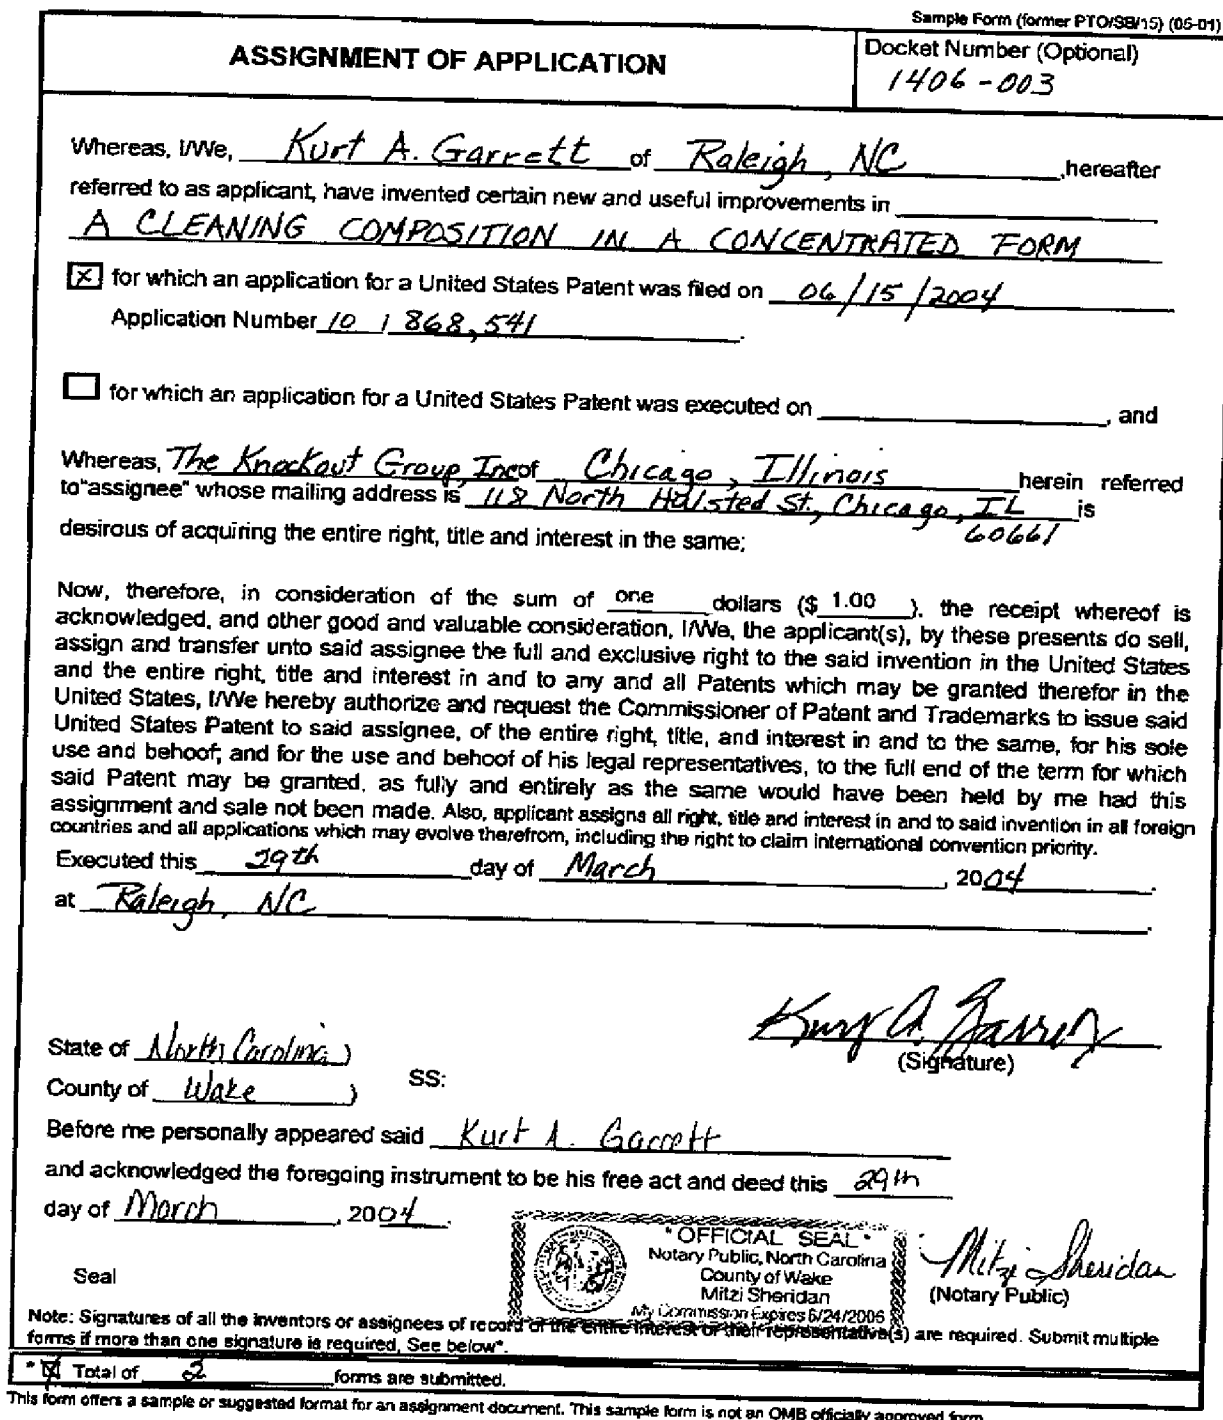 Sample Form (former PTO/SB/15) (05-01)
ASSIGNMENT OF APPLICATION
Docket Number (Optional)
1406-003
Whereas, I/We, Kurt A. Garrett of Raleigh, NC ,hereafter
referred to as applicant, have invented certain new and useful improvements in
A CLEANING COMPOSITION IN A CONCENTRATED FORM
[x] for which an application for a United States Patent was filed on 06/15/2004
Application Number 10 / 868,541 .
for which an application for a United States Patent was executed on , and
Whereas, The Knockout Group, Inc of Chicago, Illinois herein referred
to "assignee" whose mailing address is 118 North Halsted St., Chicago, IL is
60661
desirous of acquiring the entire right, title and interest in the same;
Now, therefore, in consideration of the sum of one dollars ($ 1.00 ), the receipt whereof is
acknowledged, and other good and valuable consideration, I/We, the applicant(s), by these presents do sell,
assign and transfer unto said assignee the full and exclusive right to the said invention in the United States
and the entire right, title and interest in and to any and all Patents which may be granted therefor in the
United States, I/We hereby authorize and request the Commissioner of Patent and Trademarks to issue said
United States Patent to said assignee, of the entire right, title, and interest in and to the same, for his sole
use and behoof; and for the use and behoof of his legal representatives, to the full end of the term for which
said Patent may be granted, as fully and entirely as the same would have been held by me had this
assignment and sale not been made. Also, applicant assigns all right, title and interest in and to said invention in all foreign
countries and all applications which may evolve therefrom, including the right to claim international convention priority.
Executed this 29th day of March , 2004 .
at Raleigh, NC .
Kurt A. Garrett
(Signature)
State of North Carolina )
SS:
County of Wake )
Before me personally appeared said Kurt A. Garrett
and acknowledged the foregoing instrument to be his free act and deed this 29th
day of March , 2004 .
"OFFICIAL SEAL"
Notary Public, North Carolina
County of Wake
Mitzi Sheridan
My Commission Expires 6/24/2006
Mitzi Sheridan
(Notary Public)
Seal
Note: Signatures of all the inventors or assignees of record of the entire interest or their representative(s) are required. Submit multiple
forms if more than one signature is required, See below*.
* [x] Total of 2 forms are submitted.
This form offers a sample or suggested format for an assignment document. This sample form is not an OMB officially approved form.